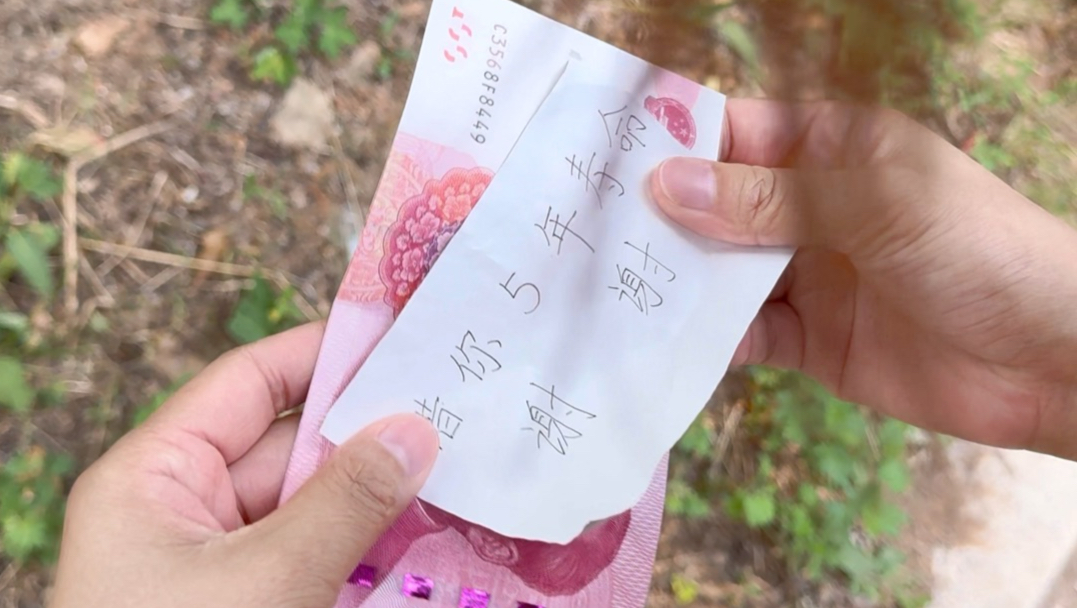 C3568F8449
借你5年寿命
谢谢